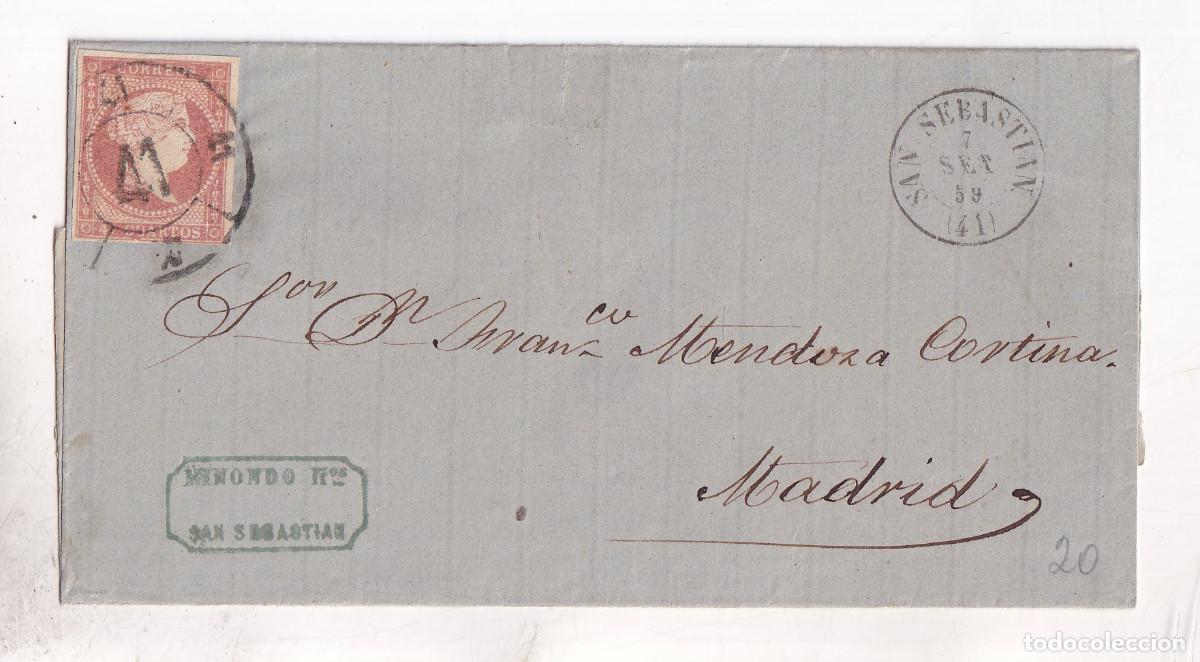 CORREOS
41
4 CUARTOS
SAN SEBASTIAN
7
SET
59
(41)
Sor Dn Franco Mendoza Cortina.
Madrid
MINONDO Hos
SAN SEBASTIAN
20
todocoleccion